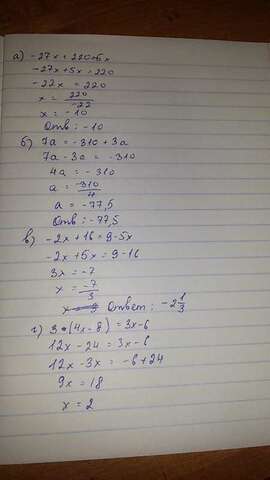 а) -27x = 220+5x
-27x+5x=220
-22x = 220
x = 220/-22
x = -10
Отв: -10
б) 7a = -310 + 3a
7a - 3a = -310
4a = -310
a = -310/4
a = -77,5
Отв: -77,5
в) -2x + 16 = 9 - 5x
-2x + 5x = 9 - 16
3x = -7
x = -7/3
Ответ: -2 1/3
г) 3*(4x - 8) = 3x-6
12x - 24 = 3x - 6
12x - 3x = -6+24
9x = 18
x = 2